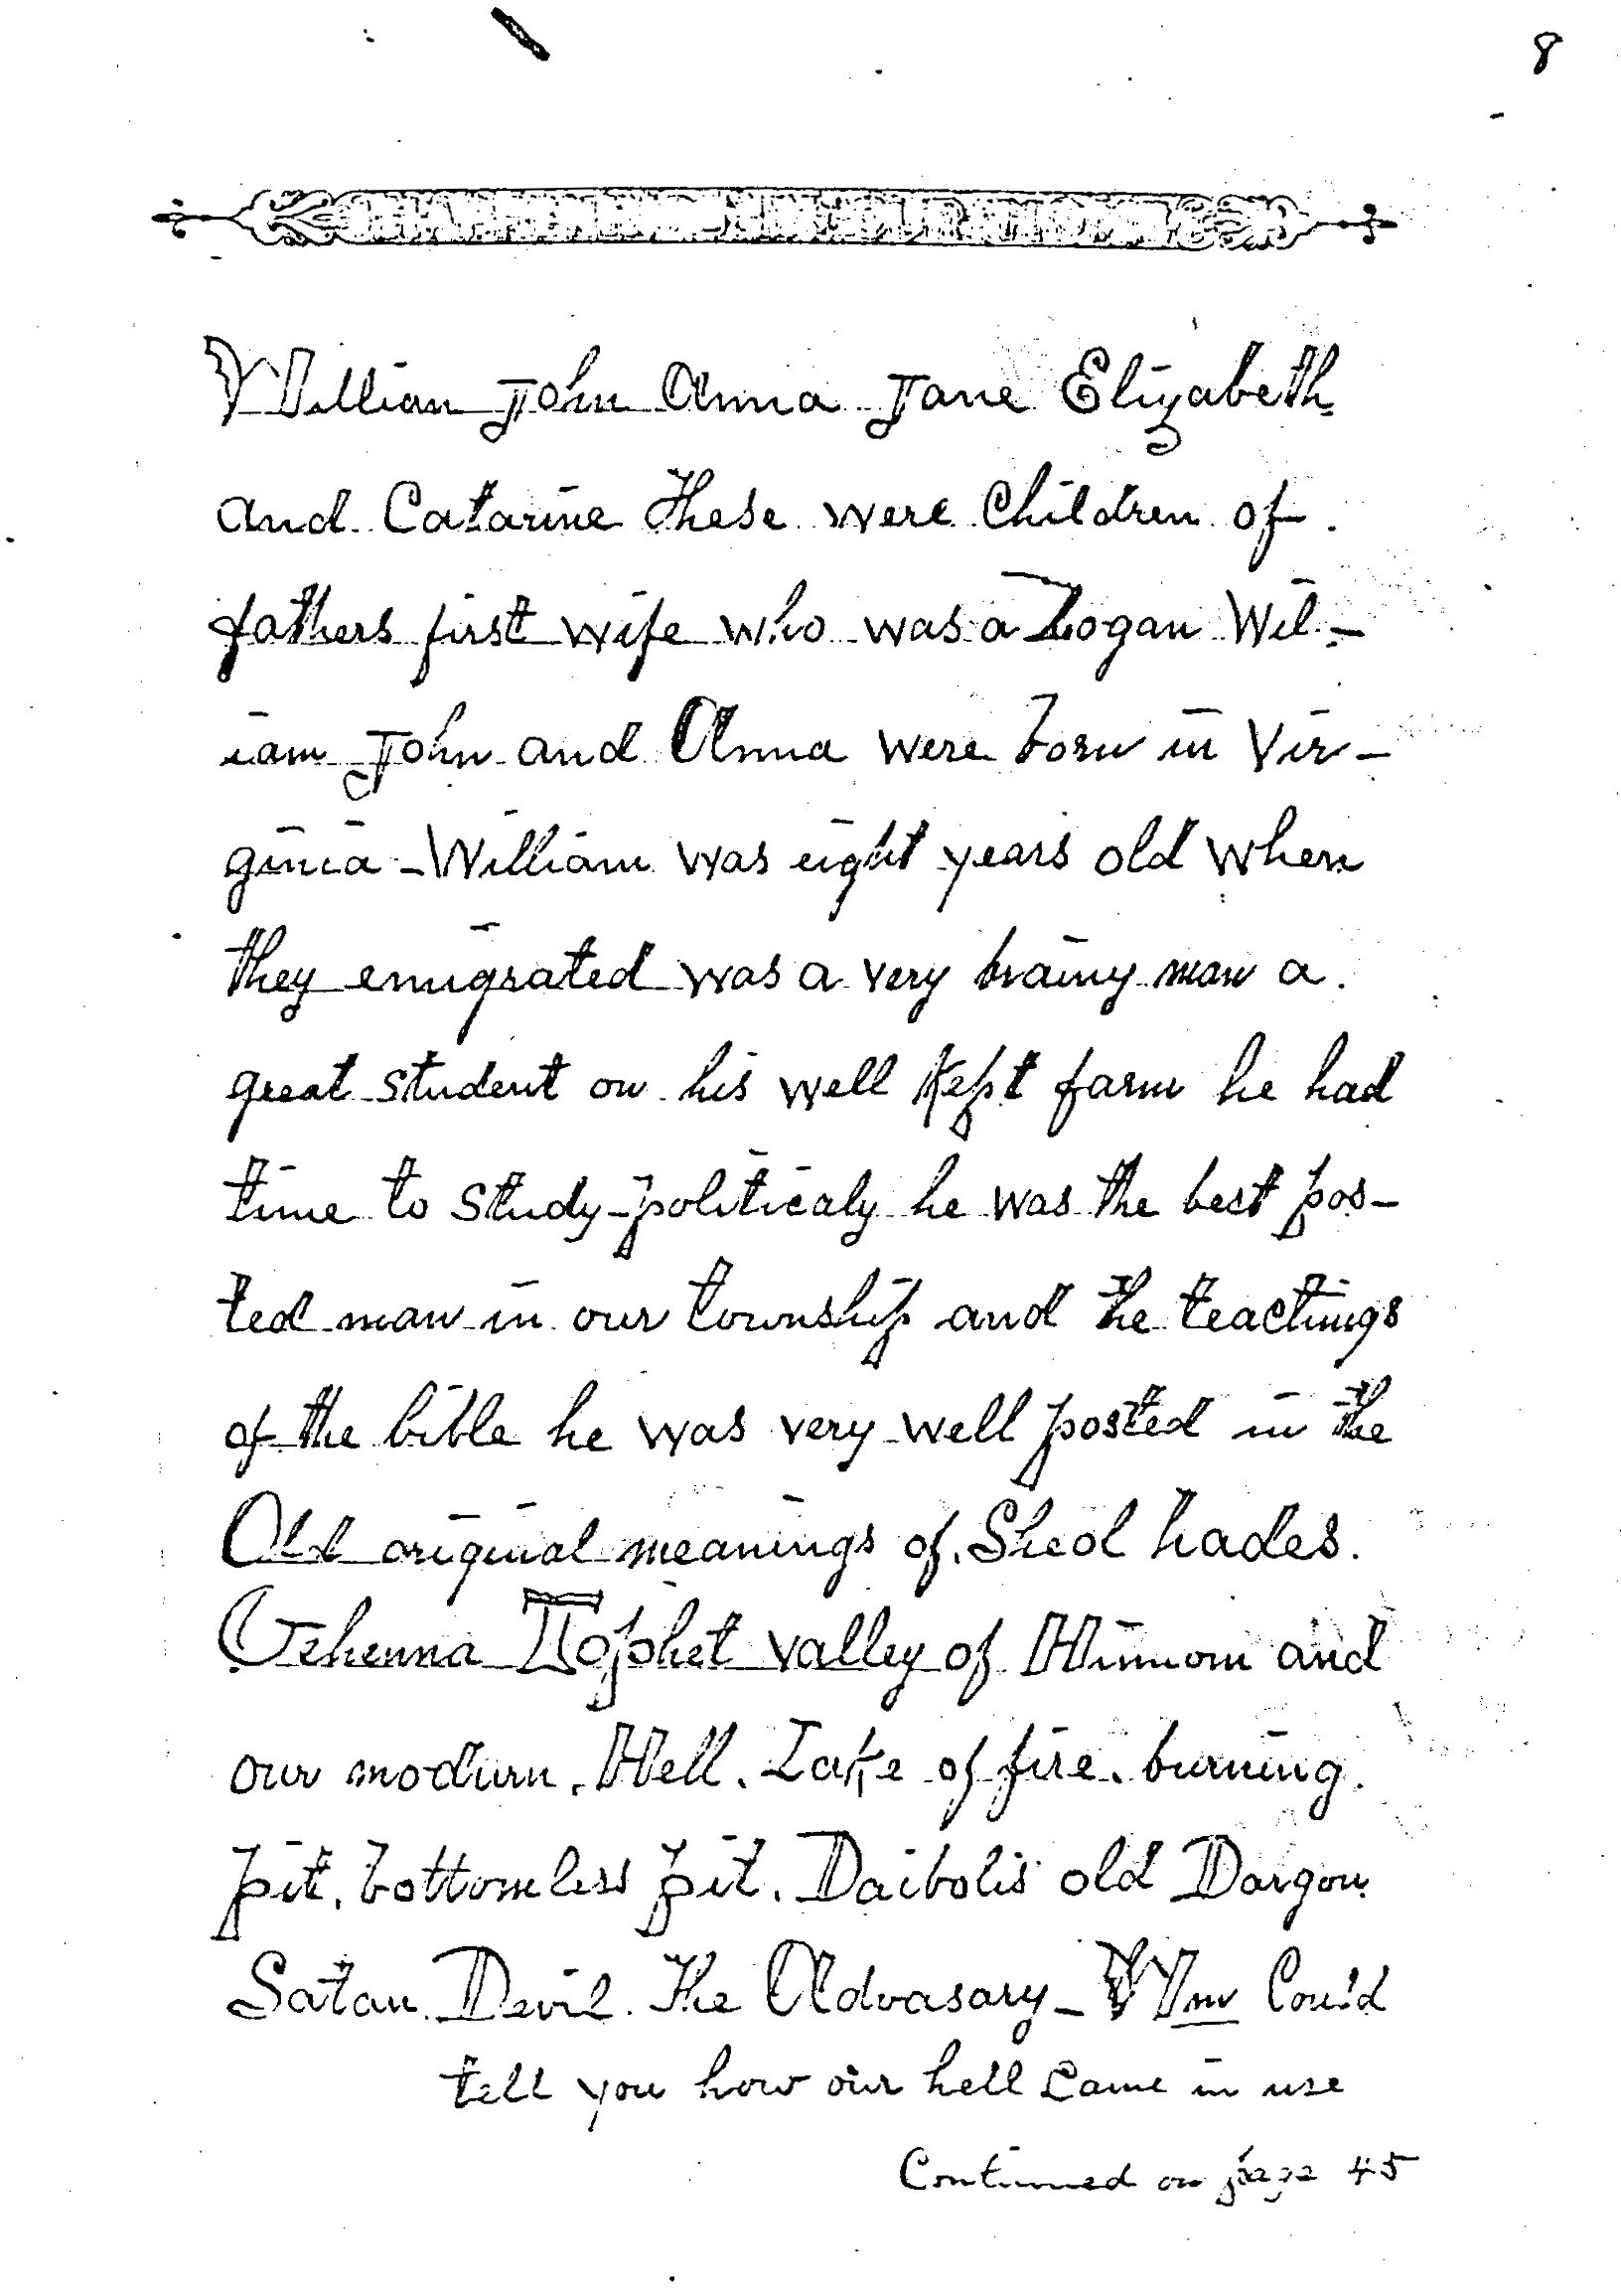 8
William John Anna Jane Elizabeth
and Catarine These were Children of
fathers first wife who was a Logan Wil-
iam John and Anna were born in Vir-
ginia - William was eight years old when
they emigrated was a very brainy man a
great student on his well Kept farm he had
time to study - politicaly he was the best pos-
ted man in our township and the teachings
of the bible he was very well posted in the
Old original meanings of. Sheol hades.
Gehenna Tophet valley of Hinnom and
our modurn. Hell. Lake of fire. burning.
pit. bottomless pit. Daibolis old Dargon
Satan. Devil. The Advasary - Wm Could
tell you how our hell came in use
Continued on page 45